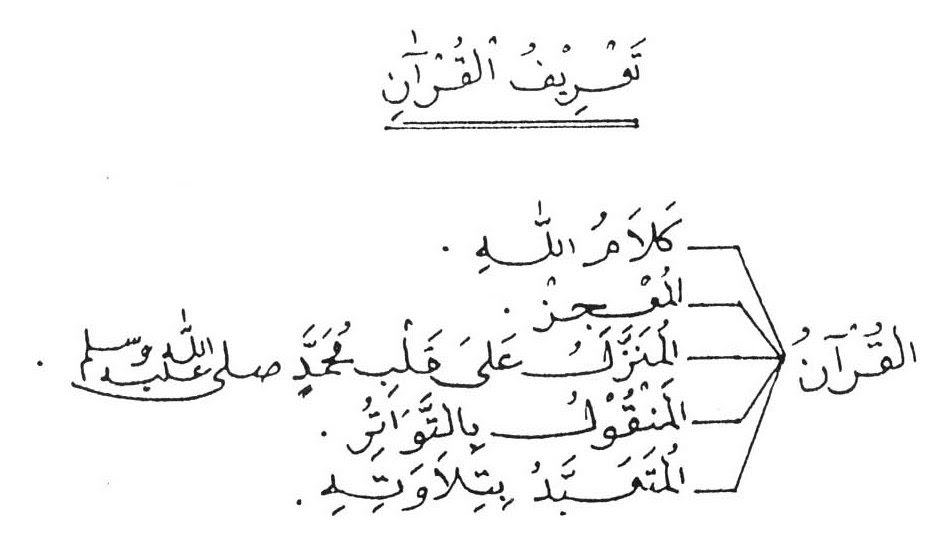 تَعْرِيْفُ الْقُرْآنِ
كَلَامُ اللّٰهِ .
المُعْجِزْ .
القُرْآنُ
المُنَزَّلُ عَلَى قَلْبِ مُحَمَّدٍ صلى الله عليه وسلم .
المَنْقُوْلُ بِالتَّوَاتِرُ .
المُتَعَبَّدُ بِتِلَاوَتِهِ .